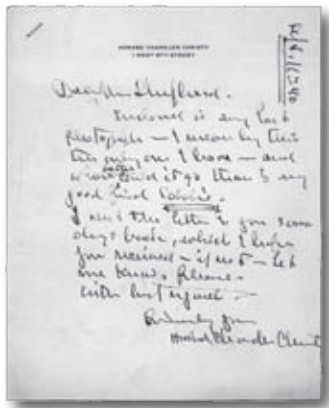 HOWARD CHANDLER CHRISTY
1 WEST 67TH STREET
Dear Mr Shepherd.
Enclosed is my last
photograph — I mean by this
the only one I have — and
would it go than to my
good friend
I sent this letter to you some
days back, which I hope
you received — if not — let
me know. Please.
with best regards —
Sincerely yours
Howard Chandler Christy